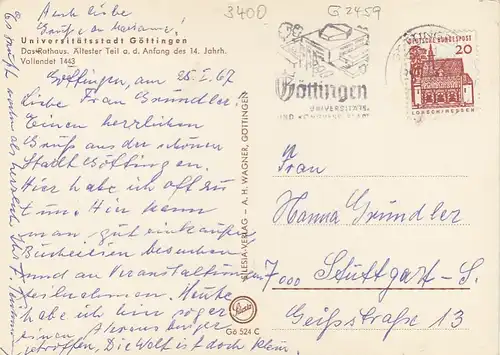 Auch liebe
Grüße an Marianne!
3400
G 2459
Universitätsstadt Göttingen
Das Rathaus. Ältester Teil a. d. Anfang des 14. Jahrh.
Vollendet 1443
Göttingen, am 25. I. 67
Liebe Frau Gründler.
Einen herrlichen
Gruß aus der schönen
Stadt Göttingen.
Hier habe ich oft zu
tun. Hier kann
man gut einkaufen
Büchereien besuchen
und an Veranstaltungen
teilnehmen. Heute
habe ich hier sogar
einen
getroffen. Die Welt ist doch klein.
Es grüßt herzlich Ihr
SILESIA-VERLAG – A. H. WAGNER, GÖTTINGEN
Gö 524 C
Göttingen
UNIVERSITÄTS-
UND
DEUTSCHE BUNDESPOST
20
LORSCH/HESSEN
Frau
Hanna Gründler
7000 Stuttgart-S.
Geißstraße 13